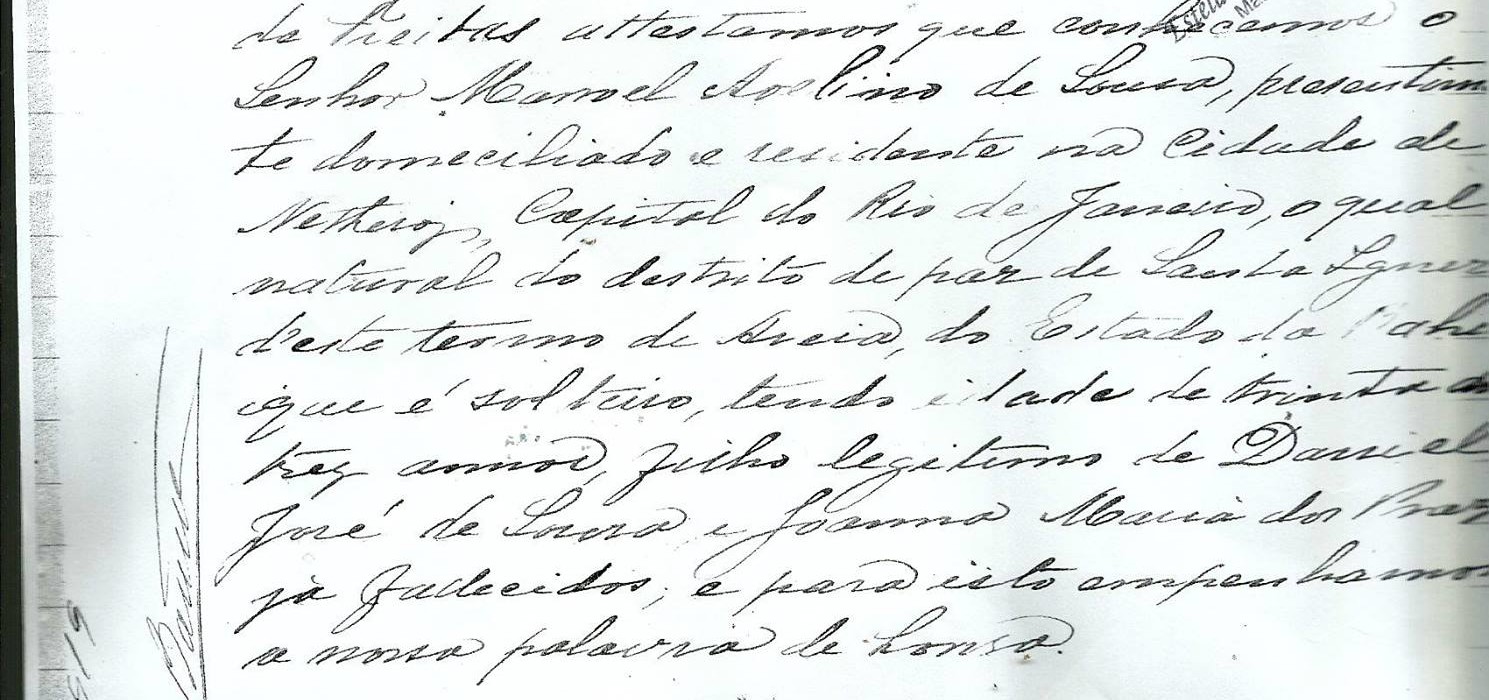 de Freitas attestamos que conhecemos o
Senhor Manoel Avelino de Sousa, presentimen
te domeciliado e residente na Cidade de
Netheroy, Capital do Rio de Janeiro, o qual
natural do destrito de paz de Santa Ignez
d'este termo de Areia, do Estado da Bahi
ique é solteiro, tendo idade de trinta e
trez annos, filho legitimo de Daniel
José de Sousa e Joanna Maria dos Praz
já faldecidos, e para isto empenhamos
a nossa palavra de honra.
Baúne